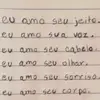 eu amo seu jeito.
eu amo sua voz.
eu amo seu cabelo.
eu amo seu olhar.
eu amo seu sorriso.
eu amo seu corpo.